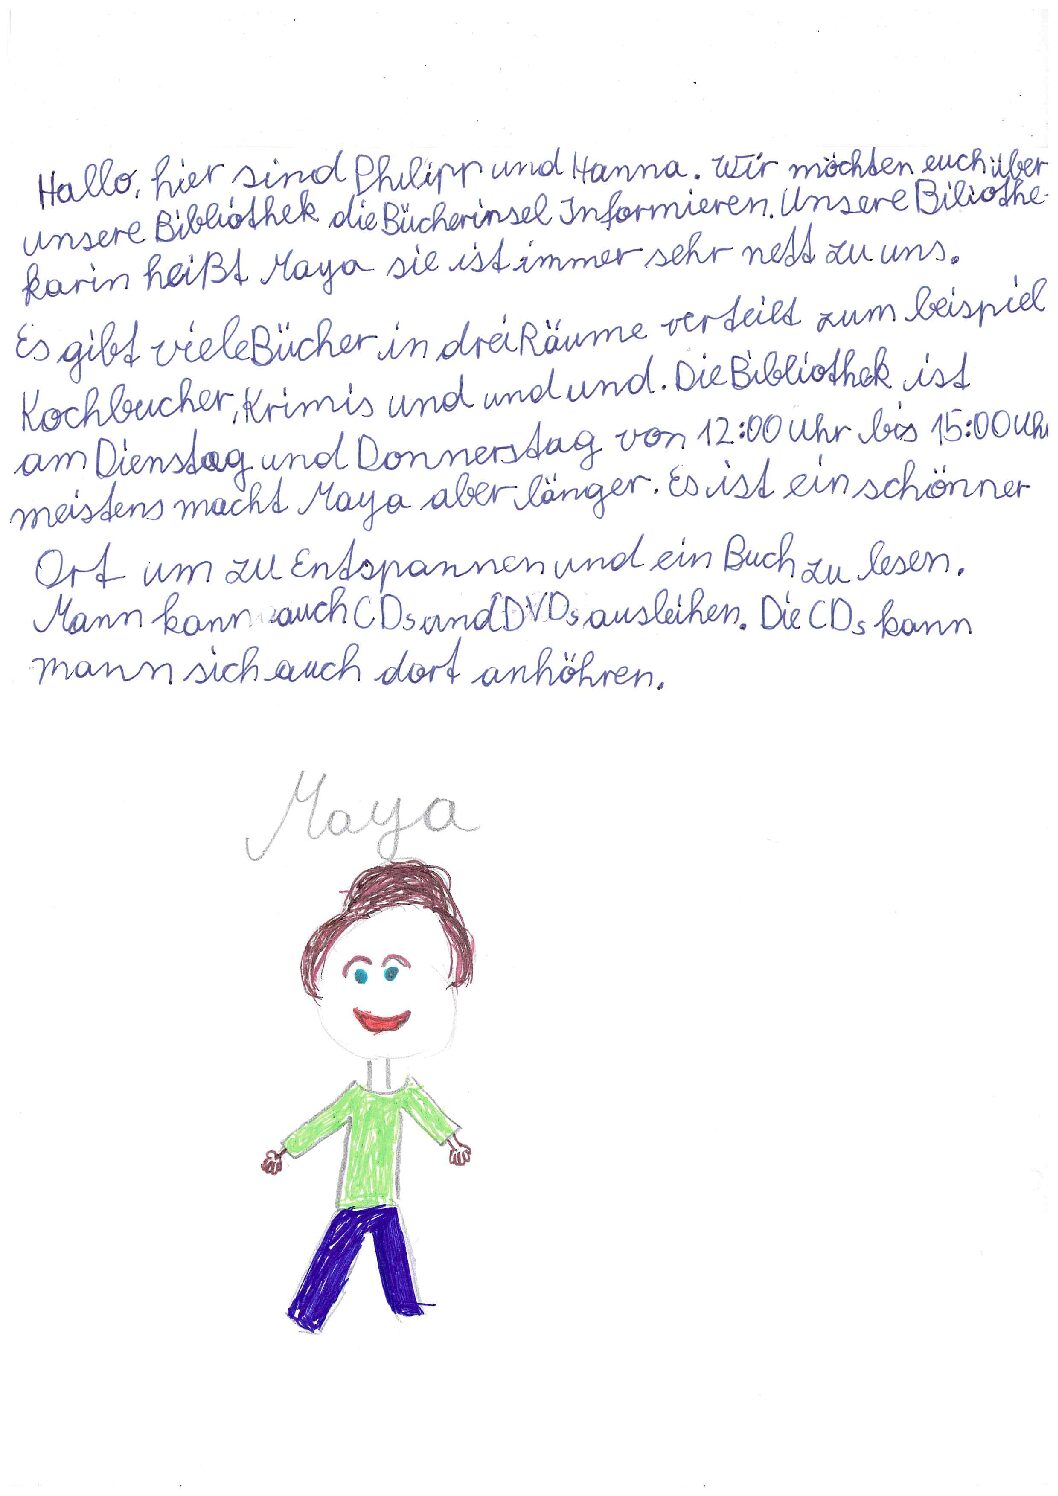 Hallo, hier sind Philipp und Hanna. Wir möchten euch über
unsere Bibliothek die Bücherinsel Informieren. Unsere Biliothe-
karin heißt Maya sie ist immer sehr nett zu uns.
Es gibt viele Bücher in drei Räume verteilt zum beispiel
Kochbucher, Krimis und und und. Die Bibliothek ist
am Dienstag und Donnerstag von 12:00 Uhr bis 15:00 Uhr
meistens macht Maya aber länger. Es ist ein schönner
Ort um zu Entspannen und ein Buch zu lesen.
Mann kann auch CDs und DVDs ausleihen. Die CDs kann
mann sich auch dort anhöhren.
Maya